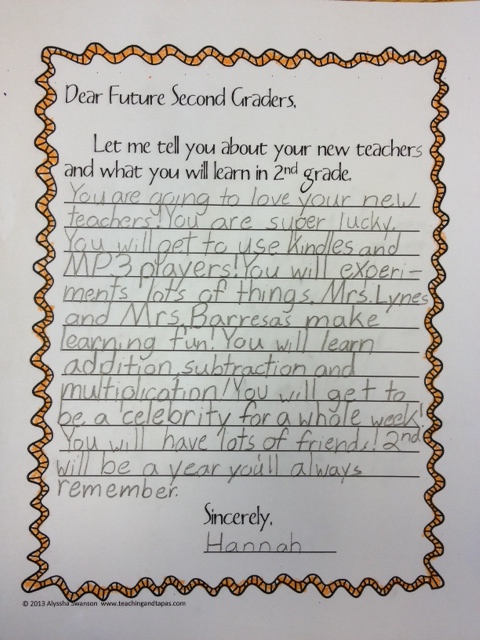 Dear Future Second Graders,
Let me tell you about your new teachers
and what you will learn in 2nd grade.
You are going to love your new
teachers! You are super lucky.
You will get to use Kindles and
MP3 players! You will experi-
ments lots of things. Mrs. Lynes
and Mrs. Barresas make
learning fun! You will learn
addition, subtraction and
multiplication! You will get to
be a celebrity for a whole week!
You will have lots of friends! 2nd
will be a year you'll always
remember.
Sincerely,
Hannah
© 2013 Alyssha Swanson www.teachingandtapas.com